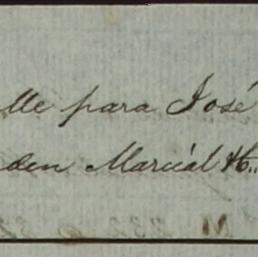 lle para José
den Marcial H..